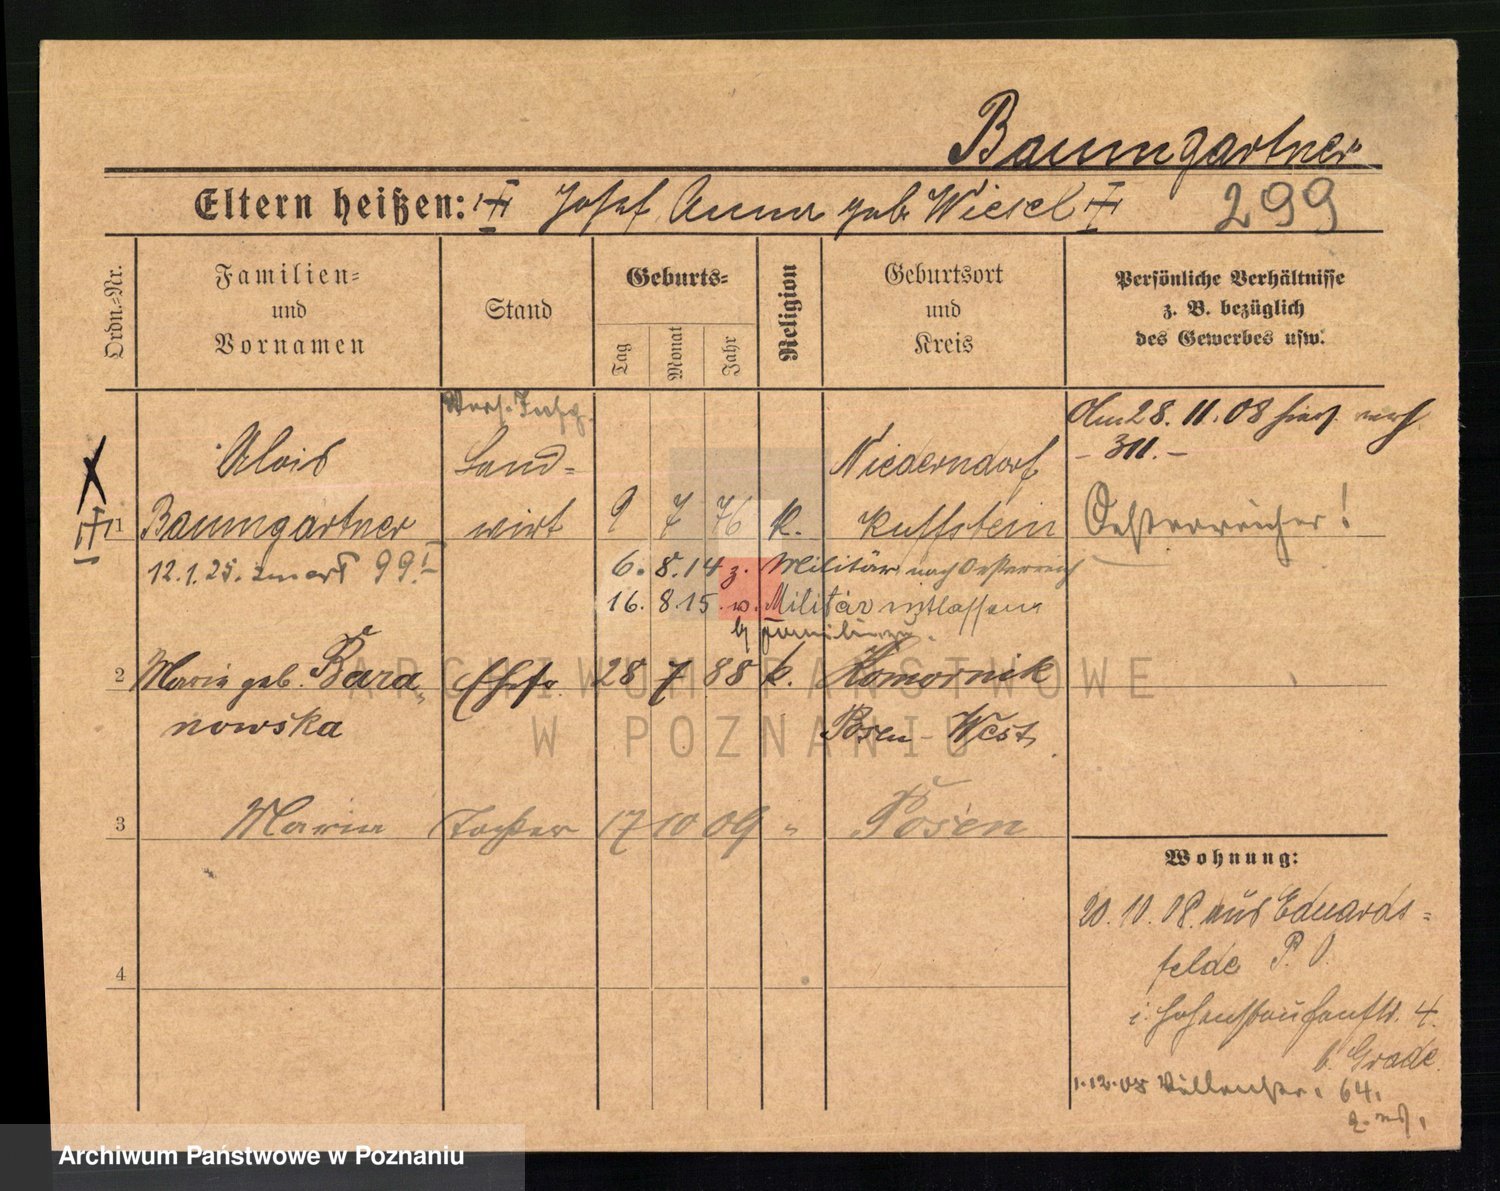 Baumgartner
Eltern heißen: Josef Anna geb. Wiesel
299
Ordn.=Nr.
Familien=
und
Vornamen
Stand
Geburts=
Tag
Monat
Jahr
Religion
Geburtsort
und
Kreis
Persönliche Verhältnisse
z. B. bezüglich
des Gewerbes usw.
Am 28. 11. 08
- 311. -
Alois
Land=
Niederndorf
1 Baumgartner wirt 9 7 76 k. Kuffstein
Oesterreicher!
12.1.25. 99
6. 8. 14 z. Militär nach Oesterreich
16. 8 15. v. Militär entlassen
2 Maria geb. Bara= Ehefr. 28 7 88 k. Komornik
nowska Posen-West
3 Maria Tochter 17 10 09 " Posen
4
Wohnung:
20. 10. 08. aus Eduards=
felde P. O.
i. Hohenstaufenstr. 4.
b. Grade.
1.12.08 64.
ARCHIWUM PAŃSTWOWE
W POZNANIU
Archiwum Państwowe w Poznaniu